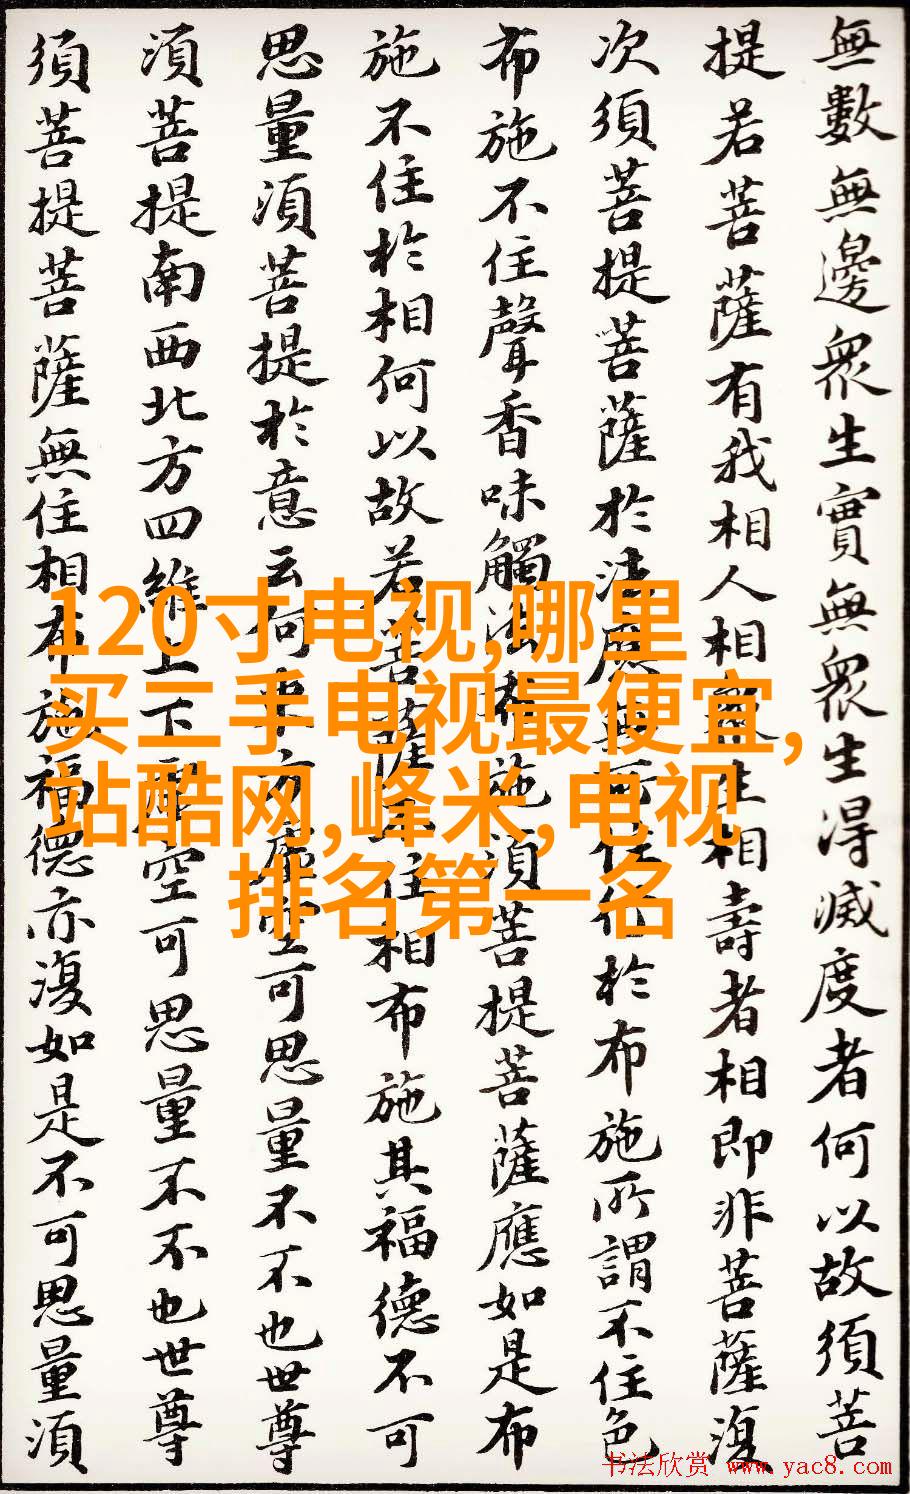 無數無邊衆生實無衆生得滅度者何以故須菩
提若菩薩有我相人相衆生相壽者相即非菩薩復
次須菩提菩薩於法應無所住行於布施所謂不住色
布施不住聲香味觸法布施須菩提菩薩應如是布
施不住於相何以故若菩薩不住相布施其福德不可
思量須菩提於意云何東方虛空可思量不不也世尊
須菩提南西北方四維上下虛空可思量不不也世尊
須菩提菩薩無住相布施福德亦復如是不可思量須
120寸电视,哪里
买二手电视最便宜,
站酷网,峰米,电视
排名第一名
书法欣赏 www.yac8.com